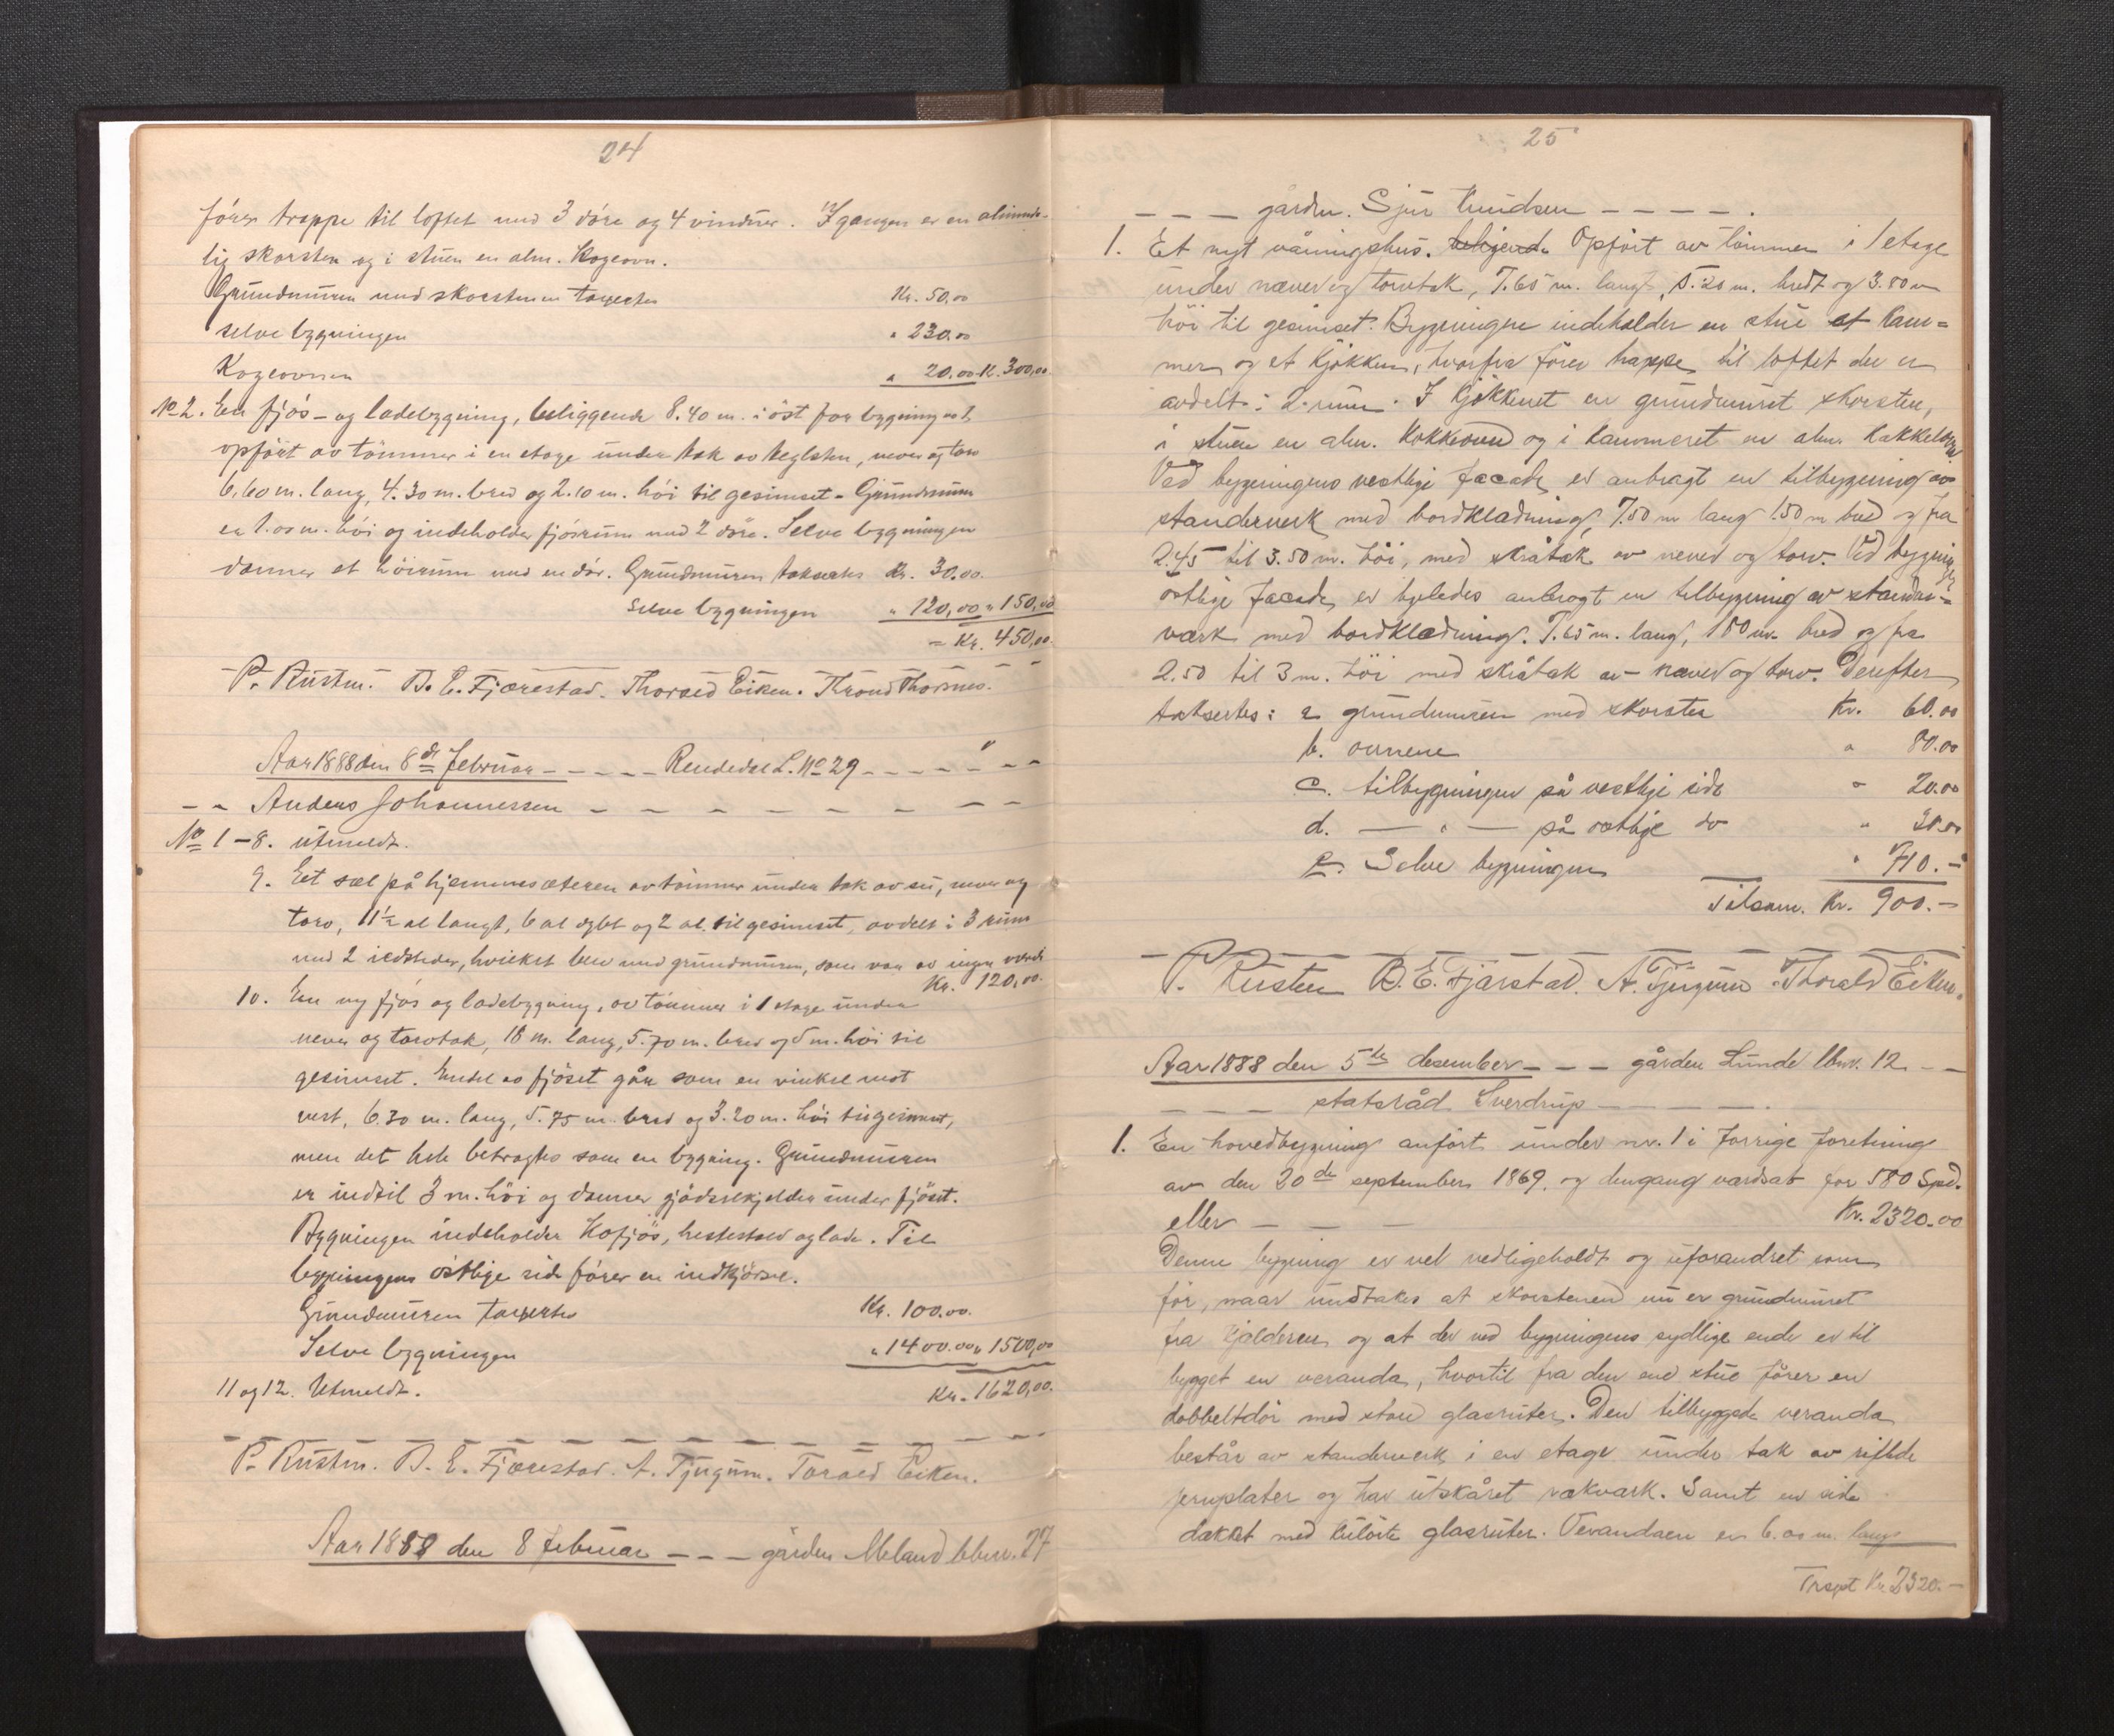 24
fórer trappe til loftet med 3 dóre og 4 vinduer. I gangen er en alminde-
lig skorsten og i stuen en alm. Kogeovn.
Grundmuren med skorstenen taxertes Kr. 50,00
selve bygningen " 230.00
Kogeovnen " 20.00 Kr. 300,00
No 2. En fjós- og ladebygning, beliggende 8.40 m. i öst for bygning no 1,
opfört av tömmer i en etage under tak av teglsten, never og torv
6.60 m. lang, 4.30 m. bred og 2.10 m. höi til gesimset - Grundmuren
er 1.00 m. höi og indeholder fjósrum med 2 döre. Selve bygningen
danner et höirum med en dör. Grundmuren taksertes Kr. 30.00.
Selve bygningen " 120,00 " 150,00
= Kr. 450,00.
P. Rusten. B. E. Fjærestad. Thorald Eiken. Thrond Thormes.
Aar 1888 den 8de februar - - - - - Rendedal L. No 29 - - - - " - -
- - Anders Johannessen - - - - - - - -
No 1-8. utmeldt.
9. Eet sæl på hjemmesæteren av tömmer under tak av never og
torv, 11½ al langt, 6 al dybt og 2 al. til gesimset, avdelt i 3 rum
med 2 ildsteder, hvilket blev med grundmuren, som var av ingen værdi
Kr. 120,00.
10. En ny fjós og ladebygning, av tömmer i 1 etage under
never og torvtak, 18 m. lang, 5.70 m. bred og 5 m. höi til
gesimset. Endel av fjöset går som en vinkel mot
vest, 6.30 m. lang, 5.75 m. bred og 3.20 m. höi til gesimset,
men det hele betragtes som en bygning. Grundmuren
er indtil 3 m. höi og danner gjödselkjelder under fjöset.
Bygningen indeholder Kofjös, hestestald og lade. Til
bygningens östlige side förer en indkjörsel.
Grundmuren taxertes Kr. 100.00.
Selve bygningen " 1400.00 " 1500,00
11 og 12. Utmeldt. Kr. 1620,00.
P. Rusten. B. E. Fjærestad. A. Tjugum. Torald Eiken.
Aar 1888 den 8 februar - - - gården Meland lbnr. 27
25
- - - gården. Sjur Knudsen - - - - .
1. Et nyt våningshus. beligende Opfört av tömmer i 1 etage
under never og torvtak, 7.65 m. langt, 5.20 m. bredt og 3.80 m
höi til gesimset. Bygningen indeholder en stue et kam=
mer og et kjökken, hvorfra förer trappe til loftet der er
avdelt i 2 rum. I kjökkenet en grundmuret skorsten,
i stuen en alm. kokkeovn og i kammeret en alm. kakkelovn
Ved bygningens vestlige facade er anbragt en tilbygning av
standerverk med bordklædning, 7.50 m lang 1.50 m bred og fra
2.45 til 3.50 m. höi, med skråtak av never og torv. Ved bygningens
östlige facade er ligeledes anbragt en tilbygning av stander=
værk med bordklædning. 7.65 m. lang, 1.80 m. bred og fra
2.50 til 3 m. höi med skråtak av never og torv. Derefter
taksertes: a grundmuren med skorsten Kr. 60.00
b. ovnene " 80.00
c. tilbygningen på vestlige side " 20.00
d. — " — på östlige do " 30.00
e. Selve bygningen " 710.-
Tilsam. Kr. 900.-
P. Rusten B. E. Fjærstad. A. Tjugum. Thorald Eiken.
Aar 1888 den 5te desember - - - gården Lunde lbnr. 12 - -
- - - statsråd Sverdrup - - - - .
1. En hovedbygning anfört under nr. 1 i forrige foretning
av den 20de september 1869. og dengang værdsat for 580 Spd.
eller - - - Kr. 2320.00
Denne bygning er vel vedligeholdt og uforandret som
för, naar undtakes at skorstenen nu er grundmuret
fra kjælderen og at der ved bygningens sydlige ende er til
bygget en veranda, hvortil fra den ene stue förer en
dobbeltdör med store glasruter. Den tilbyggede veranda
består av standerverk i en etage under tak av riflede
jernplater og har utskåret rækværk. Samt en side
dækket med kulörte glasruter. Verandaen er 6.00 m. lang
Trspt Kr. 2320.-